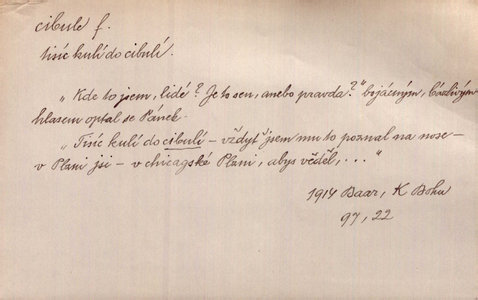 cibule f.
tisíc kulí do cibulí.
„Kde to jsem, lidé? Je to sen, anebo pravda?" bojácným, bázlivým
hlasem optal se Pánek.
„Tisíc kulí do cibulí – vždyť jsem mu to poznal na nose –
v Plani jsi – v chicagské Plani, abys věděl, ..."
1914 Baar, K Bohu
97, 22